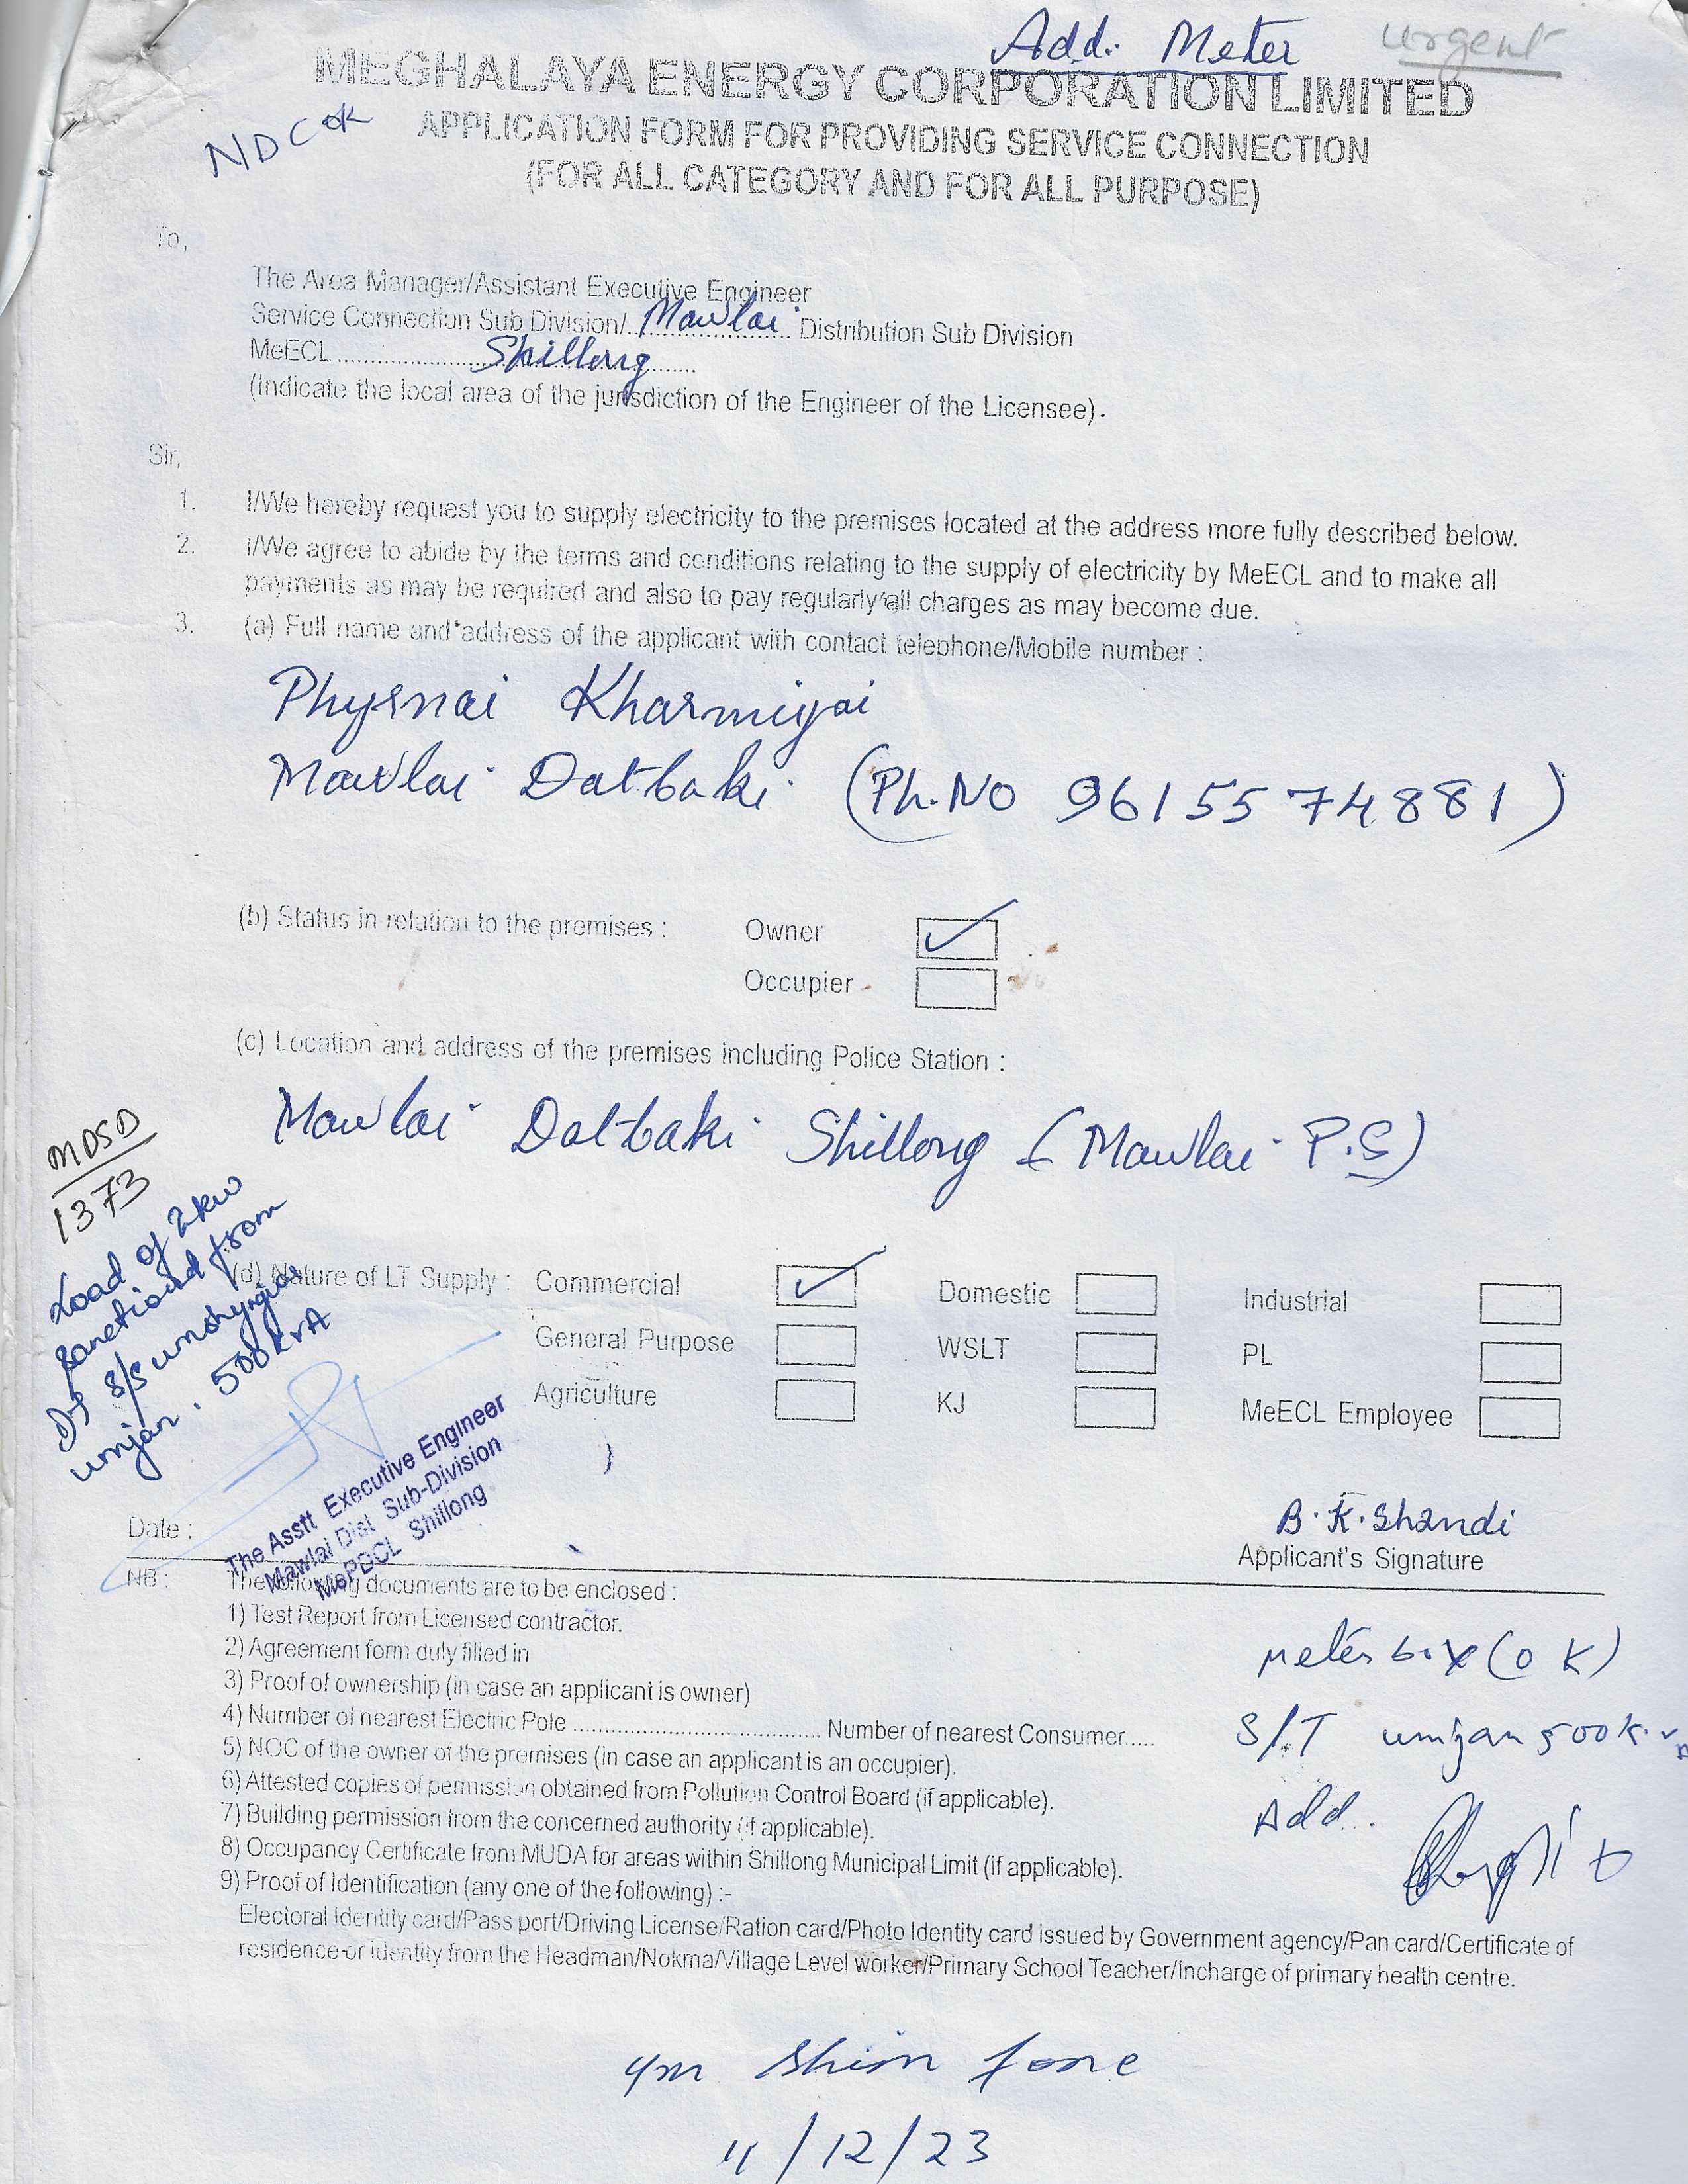 Add. Meter urgent
MEGHALAYA ENERGY CORPORATION LIMITED
NDC OK
APPLICATION FORM FOR PROVIDING SERVICE CONNECTION
(FOR ALL CATEGORY AND FOR ALL PURPOSE)
To,
The Area Manager/Assistant Executive Engineer
Service Connection Sub Division/..Mawlai.. Distribution Sub Division
MeECL........Shillong........
(Indicate the local area of the jurisdiction of the Engineer of the Licensee).
Sir,
1. I/We hereby request you to supply electricity to the premises located at the address more fully described below.
2. I/We agree to abide by the terms and conditions relating to the supply of electricity by MeECL and to make all
payments as may be required and also to pay regularly all charges as may become due.
3. (a) Full name and address of the applicant with contact telephone/Mobile number :
Physnai Kharmigai
Mawlai Datbaki (Ph.No 9615574881)
(b) Status in relation to the premises : Owner
Occupier
(c) Location and address of the premises including Police Station :
Mawlai Datbaki Shillong (Mawlai P.S)
MDSD
1373
Load of 2kw
sanctioned from
500 KVA
(d) Nature of LT Supply : Commercial Domestic Industrial
General Purpose WSLT PL
Agriculture KJ MeECL Employee
The Asstt Executive Engineer
Mawlai Dist Sub-Division
MePDCL Shillong
B.K.Shandi
Date : Applicant's Signature
NB : The following documents are to be enclosed :
1) Test Report from Licensed contractor.
2) Agreement form duly filled in
3) Proof of ownership (in case an applicant is owner)
4) Number of nearest Electric Pole ........................ Number of nearest Consumer.....
5) NOC of the owner of the premises (in case an applicant is an occupier).
6) Attested copies of permission obtained from Pollution Control Board (if applicable).
7) Building permission from the concerned authority (if applicable).
8) Occupancy Certificate from MUDA for areas within Shillong Municipal Limit (if applicable).
9) Proof of Identification (any one of the following) :-
Electoral Identity card/Pass port/Driving License/Ration card/Photo Identity card issued by Government agency/Pan card/Certificate of
residence or identity from the Headman/Nokma/Village Level worker/Primary School Teacher/Incharge of primary health centre.
Meter box (OK)
S/T umjan 500 K.V
Add.
shim fone
11/12/23